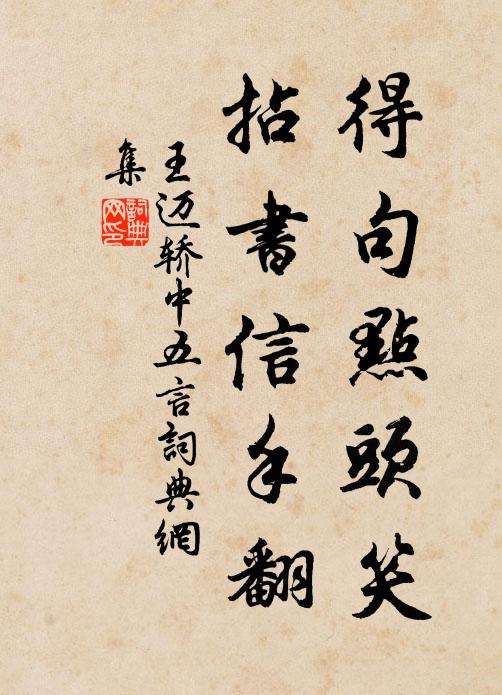 得句點頭笑
拈書信手翻
王迈轿中五言詞典網
集
詞典
网印